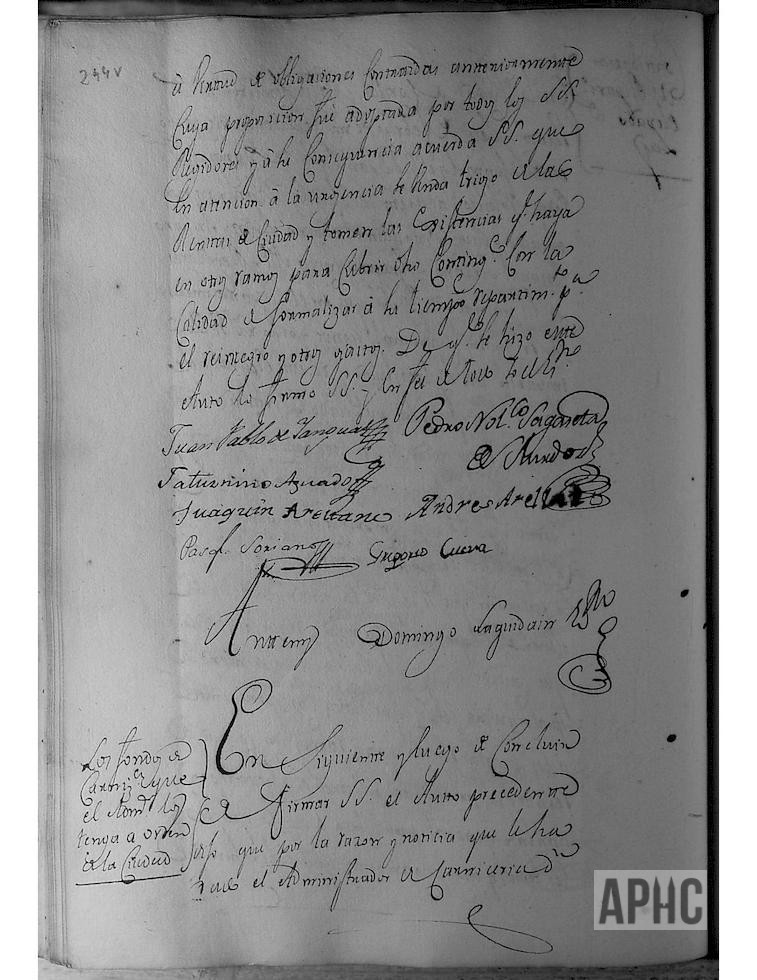 244v
á virtud de obligaciones contraidas anteriormente
Cuya proposicion fue adoptada por todos los SS.
Regidores y á su Consequencia acuerda SS. que
en atencion á la urgencia se venda trigo de las
Rentas de Ciudad y tomen las Existencias q.e haya
en otros ramos para Cubrir otro Conting.e Con la
Calidad de formalizar á su tiempo repartim.to p.a
el reintegro y otros gastos. De q.e se hizo este
Auto lo firmo SS. y En fee de todo lo el Ss.no
Juan Pablo de Yanguas
Pedro Nol.co Sagaseta
Saturnino Aguado
Joaquin Arellano Andres Arellano
Pasq.l Soriano Grigorio Cueva
Antemi Domingo Laguidain Ss.no
Los fondos de
Carniz.a que
el Adm.or los
tenga a orden
de la Ciudad
En Siguiente y luego de Concluir
de firmar SS. el Auto precedente
que por la razon y noticia que le ha
el Administrador de Carniceria d.n
APHC